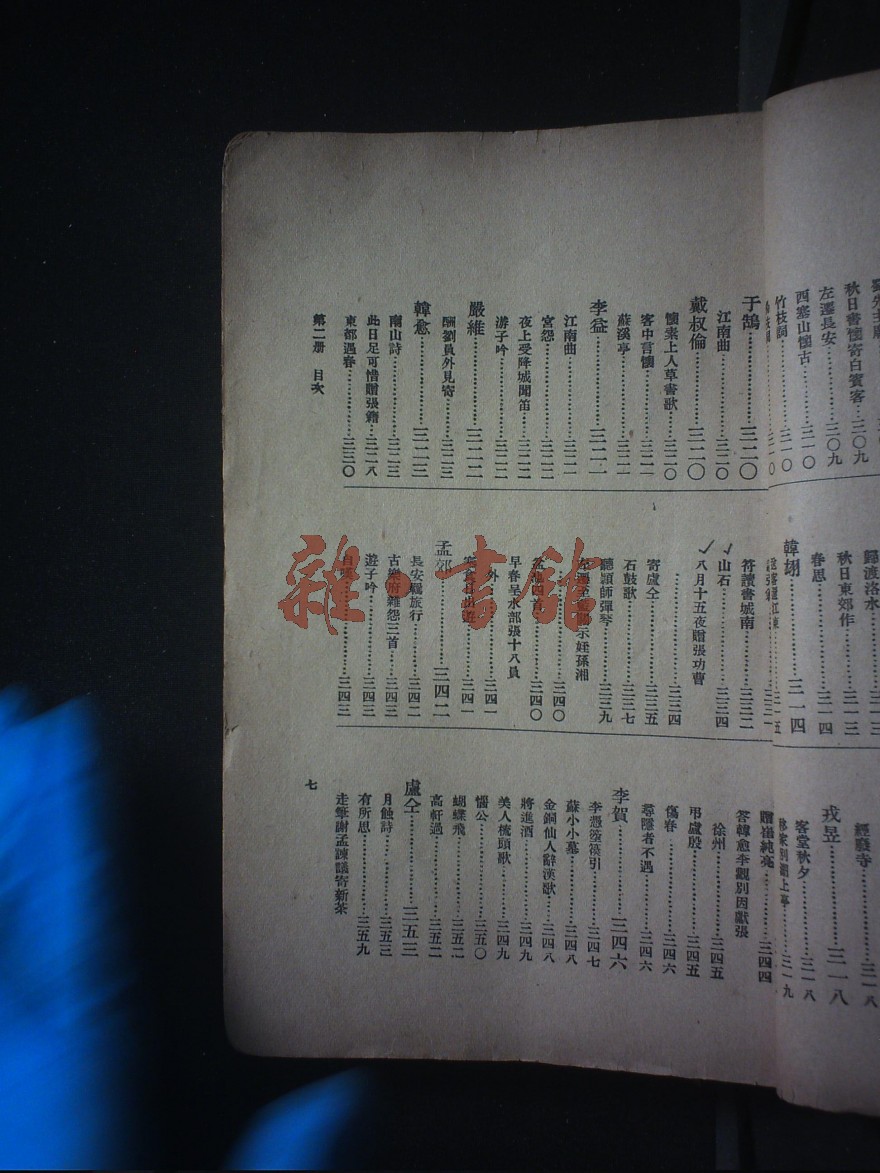 左遷長安……三〇九
秋日書懷寄白賓客……三〇九
西塞山懷古……三一〇
竹枝詞……三一〇
歸渡洛水
秋日東郊作……三一三
春思……三一四
韓翃……三一四
經廢寺……三一八
戎昱……三一八
客堂秋夕……三一八
于鵠……三二〇
江南曲……三二〇
戴叔倫……三二〇
懷素上人草書歌……三二〇
客中言懷……三二一
蘇溪亭……三二一
李益……三二一
江南曲……三二一
宮怨……三二二
夜上受降城聞笛……三二二
游子吟……三二二
嚴維……三二二
酬劉員外見寄……三二三
韓愈……三二三
南山詩……三二三
此日足可惜贈張籍……三二八
東都遇春……三三〇
符讀書城南……三三二
山石……三三四
八月十五夜贈張功曹
……三三四
寄盧仝……三三五
石鼓歌……三三七
聽穎師彈琴……三三九
左遷至藍關示姪孫湘
……三四〇
盆池四首……三四〇
早春呈水部張十八員
外……三四一
三四一
孟郊……三四二
長安羈旅行……三四二
古樂府雜怨三首……三四三
遊子吟……三四三
三四三
答韓愈李觀別因獻張
徐州……三四五
弔盧殷……三四五
傷春……三四六
尋隱者不遇……三四六
李賀……三四六
李憑箜篌引……三四七
蘇小小墓……三四八
金銅仙人辭漢歌……三四八
將進酒……三四九
美人梳頭歌……三四九
惱公……三五〇
蝴蝶飛……三五二
高軒過……三五二
盧仝……三五三
月蝕詩……三五三
有所思……三五九
走筆謝孟諫議寄新茶
第二册 目次
七
雜書館